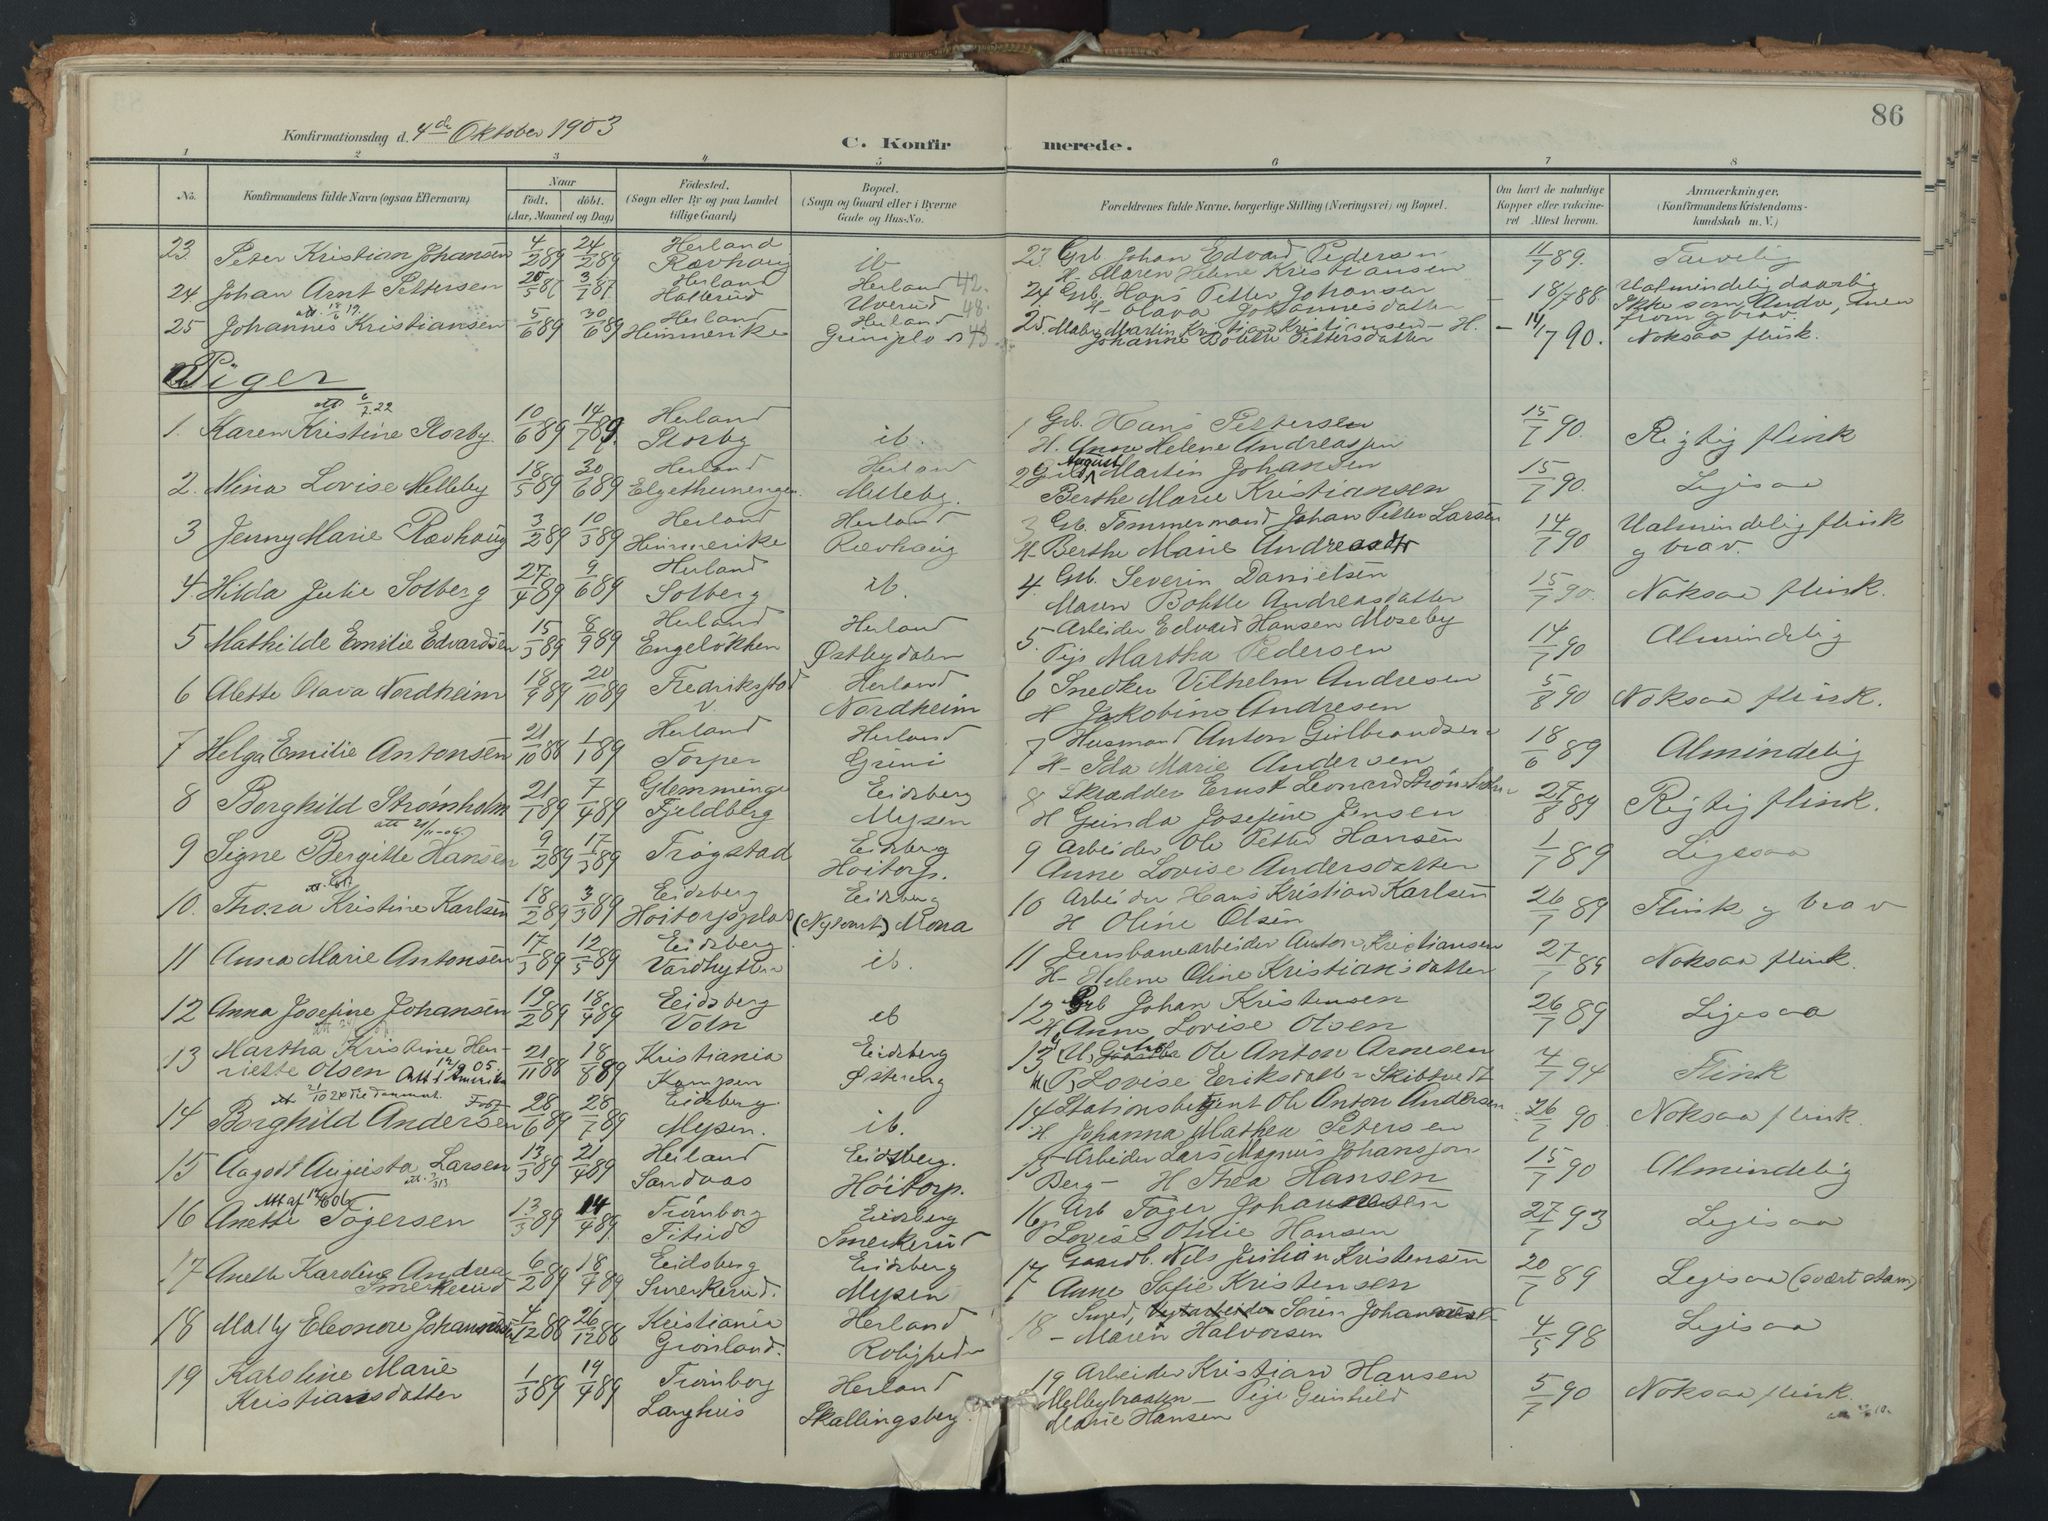 86
Konfirmationsdag d. 4de Oktober 1903
C. Konfirmerede.
1 2 3 4 5 6 7 8
No. Konfirmandens fulde Navn (ogsaa Efternavn) Naar Født. døbt. (Aar, Maaned og Dag) Fødested. (Sogn eller By og paa Landet tillige Gaard) Bopæl. (Sogn og Gaard eller i Byerne Gade og Hus-No. Forældrenes fulde Navne, borgerlige Stilling (Næringsvei) og Bopæl. Om havt de naturlige Kopper eller vaccineret Attest herom. Anmærkninger. (Konfirmandens Kristendomskundskab m. V.)
23. Peter Kristian Johansen 4/2 89 24/2 89 Herland Rævhaug ib 23 Grb Johan Edvard Pedersen H. Maren Helene Kristiansen 11/7 89. Tarvelig
24 Johan Arnt Pettersen 3/7 87 Herland Hallerud Herland Uverud 42. 48. 24 Grb. Hans Petter Johansen H- Olava Johannesdatter 18/7 88 Ualmindelig daarlig Ikke som Andre, men from g brav.
25 Johannes Kristiansen 5/6 89 30/6 89 Herland Himmerike Herland 43 25. Martin Kristian Kristiansen - H. Johanne Bolette Pettersdatter 14/7 90. Noksaa flink.
Piger
att. 6/7 22
1. Karen Kristine Storby. 10/6 89 14/7 89. Herland Storby ib. 1 Grb. Hans Pettersen H. Anne Helene Andreassen 15/7 90. Rigtig flink
2. Mina Lovise Melleby 18/5 89 30/6 89 Herland Herland Melleby. 2 August Martin Johansen Berthe Marie Kristiansen 15/7 90. Ligesaa
3 Jenny Marie Rævhaug 3/2 89 10/3 89 Herland Himmerike Herland Rævhaug 3 Grb. Tømmermand Johan Petter Larsen H- Berthe Marie Andreasdtr 14/7 90 Ualmindelig flink g brav.
4. Hilda Julie Solberg 27/4 89 9/6 89 Herland Solberg ib. 4. Grb. Severin Danielsen Maren Bolette Andreasdatter 15/7 90. Noksaa flink.
5 Mathilde Emilie Edvardsen 15/5 89 8/9 89 Herland Engeløkken Herland Østbydalen 5. Arbeider Edvard Hansen Moseby Pige Martha Pedersen 14/7 90 Almindelig
6 Alette Olava Nordheim 18/9 89 20/10 89 Fredrikstad Herland Nordheim 6 Snedker Vilhelm Andresen H Jakobine Andresen 5/8 90 Noksaa flink.
7 Helga Emilie Antonsen 21/10 88 1/1 89 Herland Torper Herland Grini 7 Husmand Anton Gulbrandsen H- Ida Marie Andersen 18/6 89 Almindelig
8 Borghild Strømholm 21/1 89 7/4 89 Glemminge Fjeldberg Eidsberg Mysen 8 Skrædder Ernst Leonard Strømholm H Gunda Josefine Jensen 27/8 89 Rigtig flink.
9 Signe Bergitte Hansen 9/2 89 17/3 89 Trøgstad Eidsberg Høitorp. 9 Arbeider Ole Petter Hansen Anne Lovise Andersdatter 1/7 89 Ligesaa
10. Thora Kristine Karlsen 18/2 89 3/3 89 Eidsberg Høitorpsplads Eidsberg Mona 10 Arbeider Hans Kristian Karlsen H Oline Olsen 26/7 89 Flink g brav
11 Anna Marie Antonsen 17/3 89 12/5 89 Eidsberg Vardhytten ib. 11 Jernbanearbeider Anton Kristiansen H- Helene Oline Kristiansdatter 27/7 89 Noksaa flink.
12 Anna Josefine Johansen 19/2 89 18/4 89 Eidsberg Voln ib 12 Grb Johan Kristensen H. Anne Lovise Olsen 26/7 89 Ligesaa
13 Martha Kristine Henriette Olsen Att t Amerika 21/11 88 18/8 89 Kristiania Kampen Eidsberg Østereng 13 Ole Anton Arnesen Lovise Eriksdatter Skibtvedt 4/7 94 Flink
14 Borghild Andersen 28/6 89 28/7 89 Eidsberg Mysen. ib. 14 Stationsbetjent Ole Anton Andersen H Johanna Mathea Petersen 26/7 90 Noksaa flink.
15 Aagodt Augusta Larsen 13/3 89 21/4 89 Herland Sandaas Eidsberg. Høitorp. 15 Arbeider Lars Magnus Johansson Berg - H Thea Hansen 15/7 90 Almindelig
16 Anette Tøgersen 13/3 89 14/4 89 Trømborg Eidsberg Smerkerud 16 Arb Tøger Johannesen Lovise Othilie Hansen 27/7 93 Ligesaa
17 Anette Karoline Andrea Smerkerud 6/2 89 18/4 89 Eidsberg Smerkerud. Eidsberg Mysen 17 Gaardb. Nils Julian Kristensen Anne Sofie Kristensen 20/7 89 Ligesaa (svært stam)
18 Mally Eleonore Johannesen 4/12 88 26/12 88 Kristiania Grønland. Herland Roligheden 18 Smed, Søren Johannesen - Maren Halvorsen 4/5 98 Ligesaa
19 Karoline Marie Kristiansdatter 1/3 89 19/4 89 Trømborg Langhus Herland Skallingsberg 19 Arbeider Kristian Hansen Mellebybraaten - Pige Gunhild Marie Hansen 5/7 90 Noksaa flink.